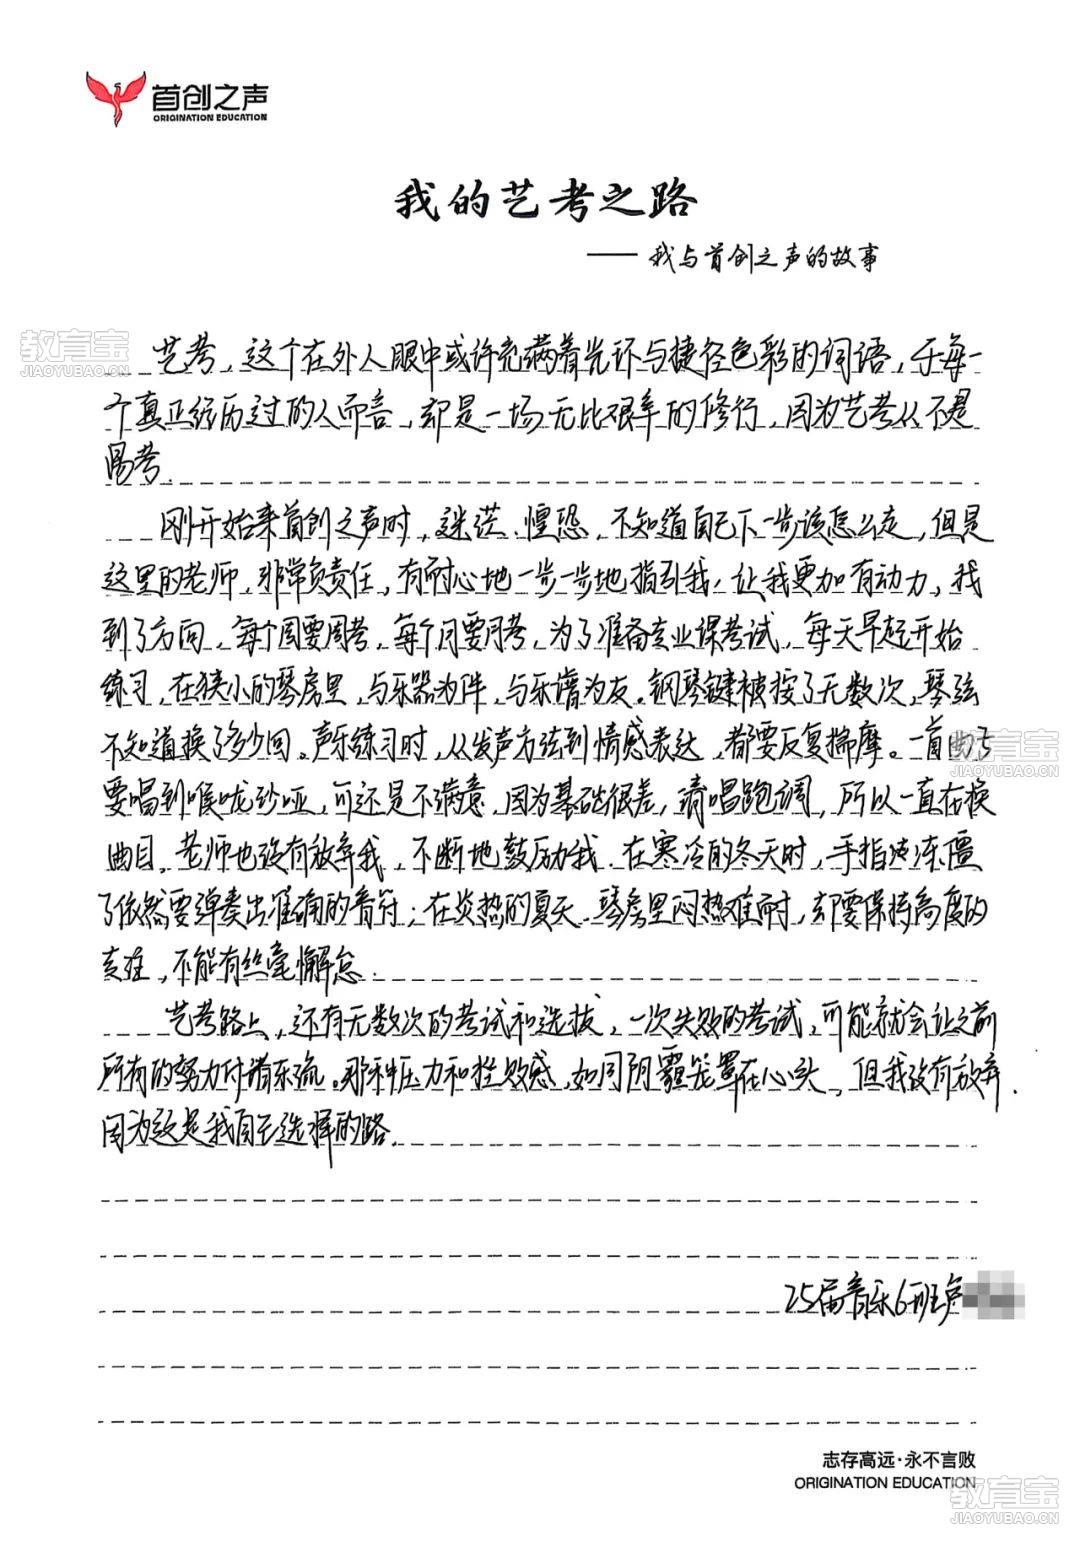 首创之声
ORIGINATION EDUCATION
我的艺考之路
——我与首创之声的故事
教育宝
JIAOYUBAO.CN
艺考，这个在外人眼中或许充满着光环与捷径色彩的词语，于每一
个真正经历过的人而言，却是一场无比艰辛的修行，因为艺考从不是
易考.
刚开始来首创之声时，迷茫、惶恐，不知道自己下一步该怎么走，但是
这里的老师，非常负责任，有耐心地一步一步地指引我，让我更加有动力，找
到了方向，每个周要周考，每个月要月考，为了准备专业课考试，每天早起开始
练习，在狭小的琴房里，与乐器为伴，与乐谱为友。钢琴键被按了无数次，琴弦
不知道换了多少回。声乐练习时，从发声方法到情感表达，都要反复揣摩。一首曲子
教育宝
JIAOYUBAO.CN
要唱到喉咙沙哑，可还是不满意，因为基础很差，清唱跑调，所以一直在换
曲目。老师也没有放弃我，不断地鼓励我.在寒冷的冬天时，手指冻僵
了依然要弹奏出准确的音符；在炎热的夏天、琴房里闷热难耐，却要保持高度的
专注，不能有丝毫懈怠.
艺考路上，还有无数次的考试和选拔，一次失败的考试，可能就会让之前
所有的努力付诸东流。那种压力和挫败感，如同阴霾笼罩在心头，但我没有放弃.
因为这是我自己选择的路.
25届音乐6班卢
志存高远·永不言败
ORIGINATION EDUCATION
教育宝
JIAOYUBAO.CN